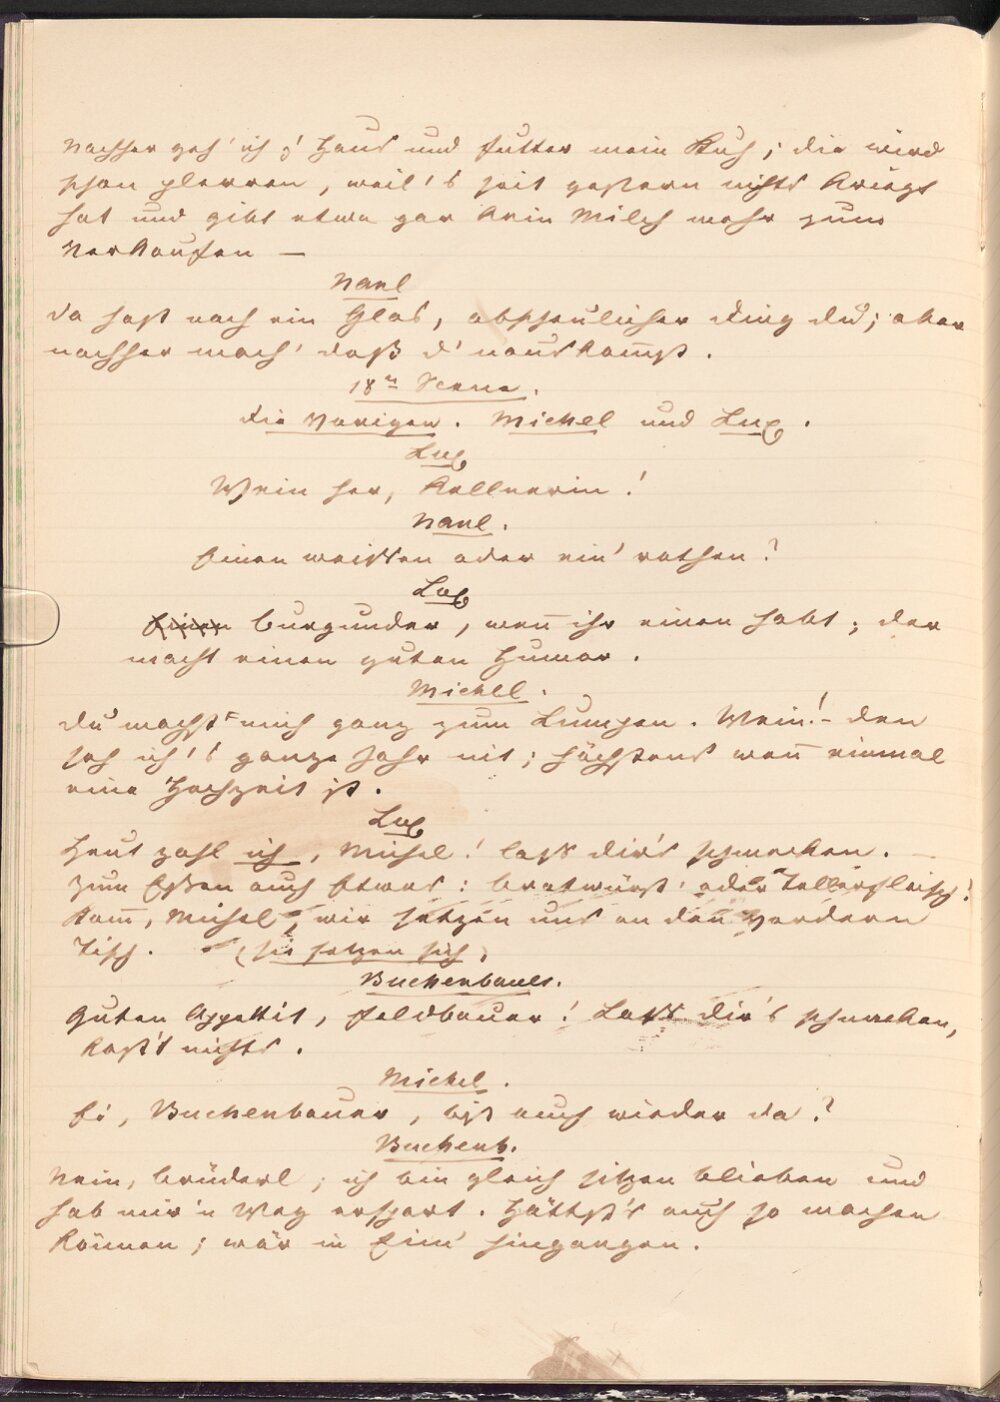 nachher geh' ich z' Haus und futter mein Kuh; die wird
schon plerren, weil's seit gestern nichts kriegt
hat und gibt etwa gar kein Milch mehr zum
Verkaufen —
Nanl
Da hast noch ein Glas, abscheulicher Ding du; aber
nachher mach' daß d' nauskom̅st.
18te Scene.
Die Vorigen. Michel und Lux.
Lux
Wein her, Kellnerin!
Nanl.
Einen weissen oder ein' rothen?
Lux
Einen Burgunder, wen̅ ihr einen habt; der
macht einen guten Humor.
Michel.
Du machst mich ganz zum Lumpen. Wein! – den
seh ich 's ganze Jahr nit; höchstens wen̅ einmal
eine Hochzeit ist.
Lux
Heut zahl ich, Michel! lass dir's schmecken. –
Zum Essen auch Etwas: Bratwürst' oder Tellerfleisch!
Kom̅, Michel, wir setzen uns an den vordern
Tisch. (sie setzen sich)
Buchenbauer.
Guten Appetit, Feldbauer! Lass dir's schmecken,
kost't nichts.
Michel.
Ei, Buchenbauer, bist auch wieder da?
Buchenb.
Nein, Brüderl; ich bin gleich sitzen blieben und
hab mir'n Weg erspart. Hättst's auch so machen
können; wär in Ein' hingangen.